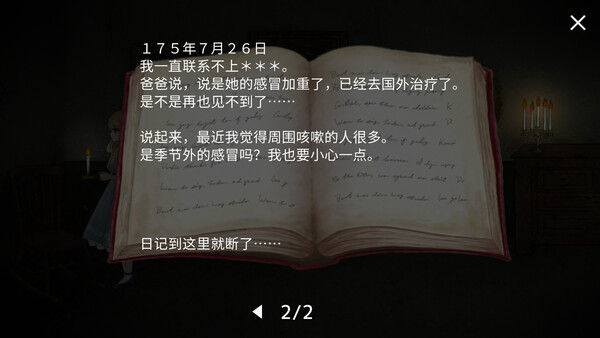 １７５年７月２６日
我一直联系不上＊＊＊。
爸爸说，说是她的感冒加重了，已经去国外治疗了。
是不是再也见不到了……
说起来，最近我觉得周围咳嗽的人很多。
是季节外的感冒吗？我也要小心一点。
日记到这里就断了……
2/2